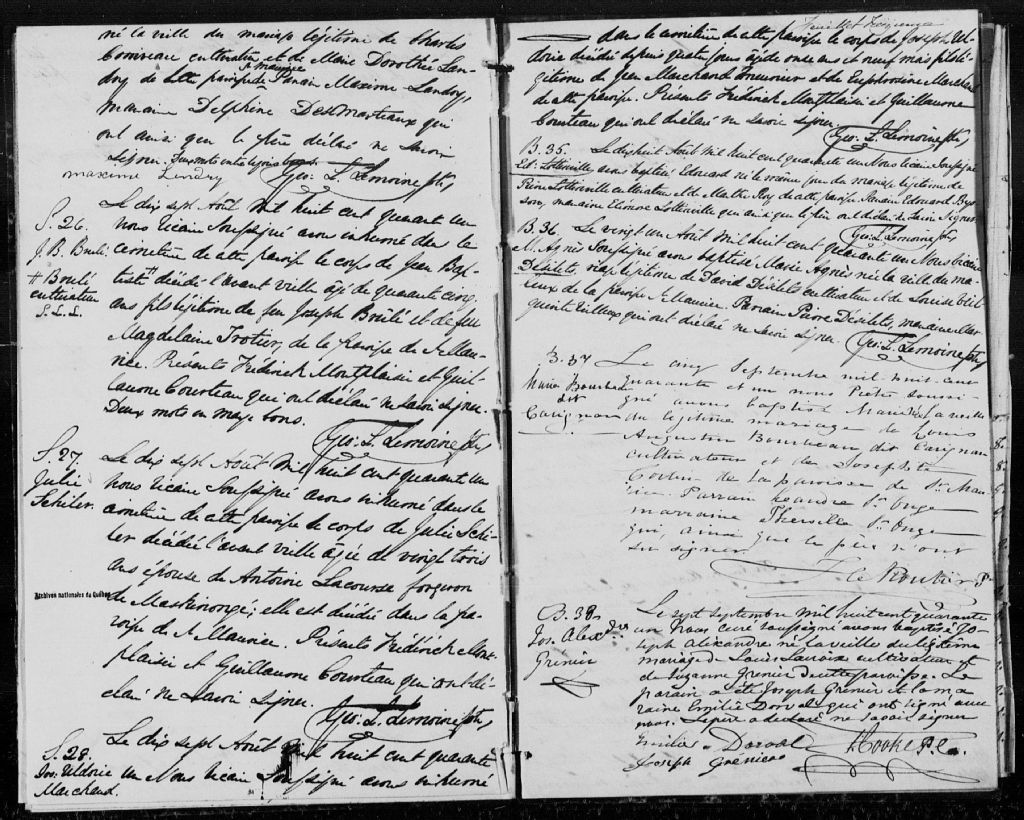 né la veille du mariage légitime de Charles
Comireau cultivateur et de Marie Dorothée Lan-
dry de cette paroisse Parain Maxime Landry,
maraine Delphine Desmarteaux qui
ont ainsi que le père déclaré ne savoir
signer.
maxime Lendry Geo: S. Lemoine Ptre
S. 26.
J. B. Brulé
# Brulé
cultivateur
S. L. L.
Le dix sept Août Mil huit cent quarant un
nous Vicaire Soussigné avons inhumé dans le
cimetière de cette paroisse le corps de Jean Bap-
tiste décédé l'avant veille âgé de quarante cinq
ans fils légitime de feu Joseph Brulé et de feu
Magdelaine Trotier, de la Paroisse de St Mau-
rice. Présents Fréderick Montplaisir et Guil-
laume Courteau qui ont déclaré ne savoir signer.
Deux mots en marge bons.
Geo: S. Lemoine Ptre
S. 27
Julie
Schiler.
Le dix sept Août Mil huit cent quarant un
nous Vicaire Soussigné avons inhumé dans le
cimetière de cette paroisse le corps de Julie Schi-
ler décédée l'avant veille âgée de vingt trois
ans épouse de Antoine Lacourse forgeron
Archives nationales du Québec
de Maskinongé; elle est décédée dans la pa-
roisse de St Maurice. Présents Fréderick Mont-
plaisir et Guillaume Courteau qui ont dé-
claré ne savoir signer.
Geo: S. Lemoine Ptre
S. 28.
Jos. Eldorie
Marchand.
Le dix sept Août Mil huit cent quarante
un Nous Vicaire Soussigné avons inhumé
dans le cimetière de cette paroisse le corps de Joseph El-
dorie décédé depuis quatre jours âgé de onze ans et neuf mois fils lé-
gitime de Jean Marchand et de Euphrosine Marchand
de cette paroisse. Présents Fréderick Montplaisir et Guillaume
Courteau qui ont déclaré ne savoir signer.
Geo: S. Lemoine Ptre
B. 35.
Ed: Lottinville
Le dix huit Août Mil huit cent quarante un Nous Vicaire Soussigné
avons baptisé Edouard né le même jour du mariage légitime de
Pierre Lottinville cultivateur et de Marthe Roy de cette paroisse Parain Edouard Bris
son, maraine Elionne Lottinville qui ainsi que le père ont déclaré ne savoir signer
Geo: S. Lemoine Ptre
B. 36
M. Agnès
Désilets,
Le vingt un Août Mil huit cent quarante un Nous Vicaire
Soussigné avons baptisé Marie Agnès née la veille du ma-
riage légitime de David Désilets cultivateur et de Louise
de la paroisse St Maurice. Parain Pierre Désilets, maraine Mar-
qui ont déclaré ne savoir signer. Geo: S. Lemoine Ptre
B. 37
Marie Bourbeau
dit
Carignan
Le cinq Septembre mil-huit-cent
quarante et un nous Prêtre soussi-
gné avons baptisé Marie née la veille
du légitime mariage de Louis
Augustin Bourbeau dit Carignan
cultivateur et de Josephte
de la paroisse de St. Mau-
rice. Parrain Leandre St. Onge
marraine Thersille St. Onge
qui, ainsi que le père n'ont
su signer.
B. 38
Jos. Alexdre
Grenier
Le sept septembre mil huit cent quarante
un Nous curé soussigné avons baptisé Jo-
seph Alexandre né la veille du légitime
mariage de Louis Lavoix cultivateur et
de Suzanne Grenier de cette paroisse. Le
parain a été Joseph Grenier et la ma
raine Emilie Dorval qui ont signé avec
nous. Le père a déclaré ne savoir signer
Emilie Dorval Hooke P.C.
Joseph Grenier